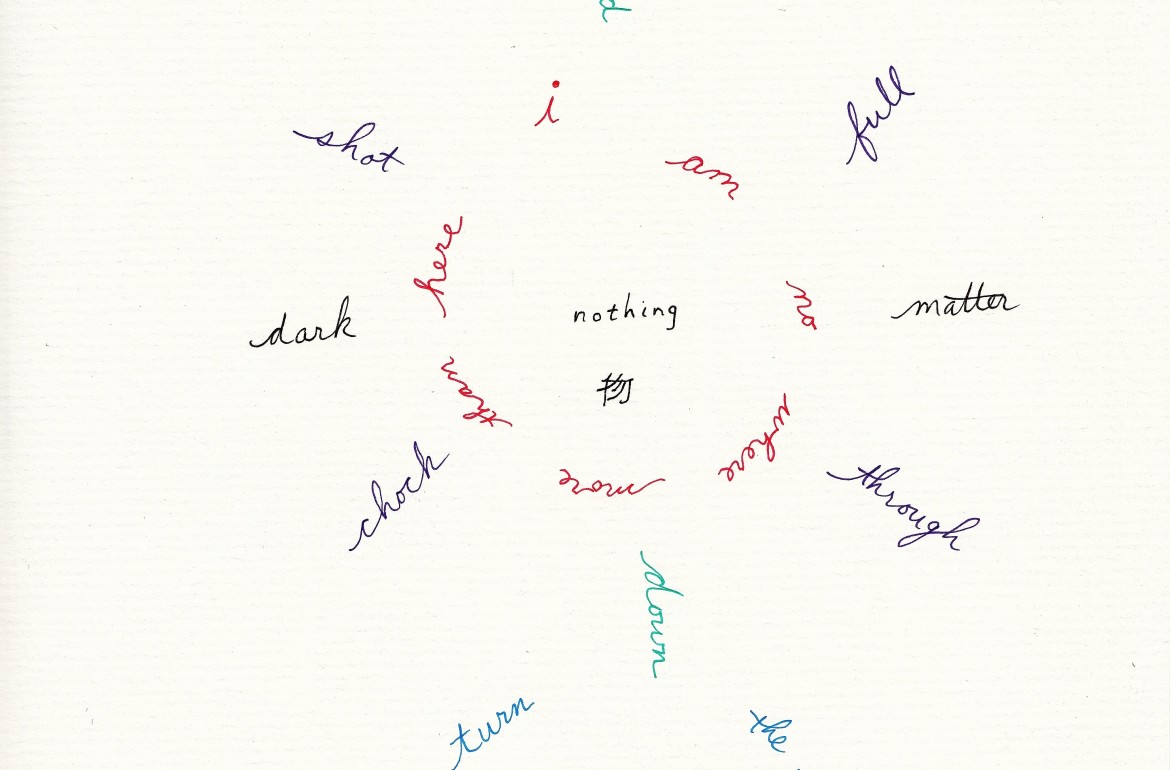 i
am
no
where
more
than
here
shot
full
dark
nothing
matter
物
chock
through
down
turn
the